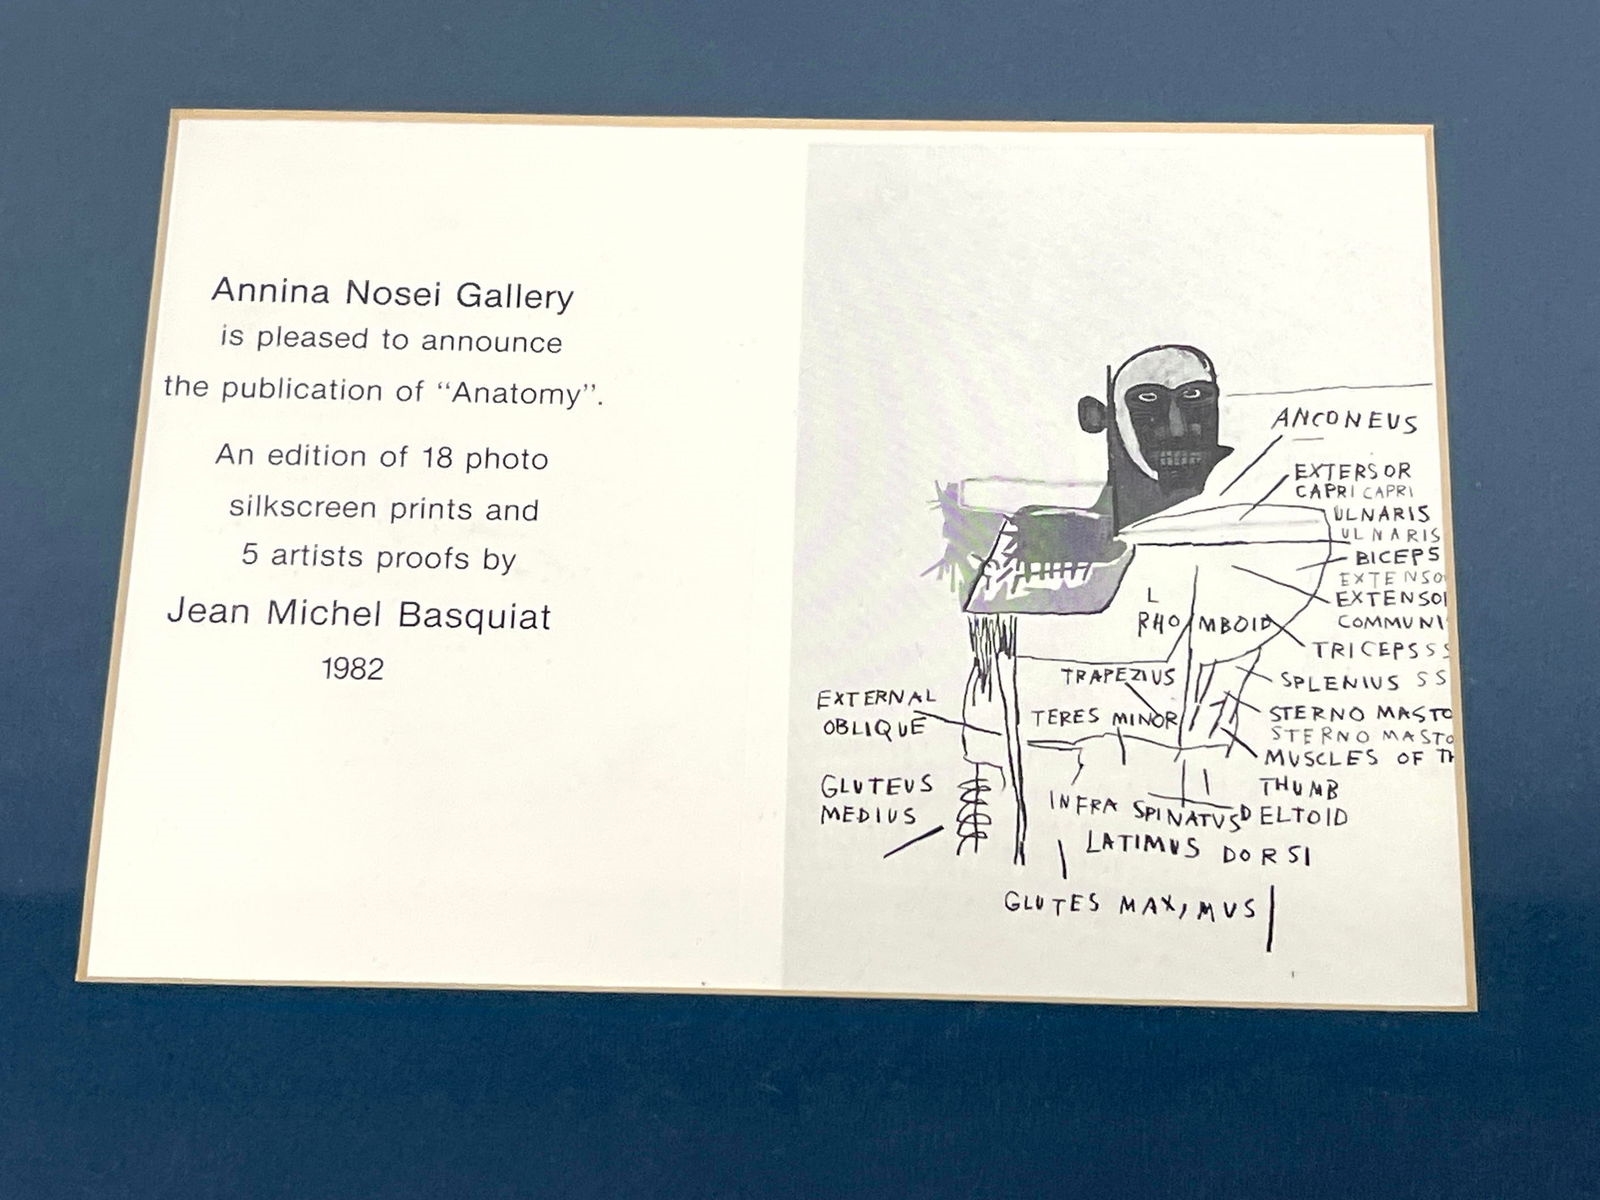 Annina Nosei Gallery
is pleased to announce
the publication of “Anatomy”.
An edition of 18 photo
silkscreen prints and
5 artists proofs by
Jean Michel Basquiat
1982
ANCONEUS
EXTERSOR
CAPRI CAPRI
ULNARIS
ULNARIS
BICEPS
EXTENSO
EXTENSO
COMMUNI
L
RHOMBOID
TRICEPS S S
TRAPEZIUS
SPLENIUS S S
EXTERNAL
OBLIQUE
TERES MINOR
STERNO MASTO
STERNO MASTO
MUSCLES OF TH
THUMB
GLUTEUS
MEDIUS
INFRA SPINATUS DELTOID
LATIMUS DORSI
GLUTES MAX,MUS